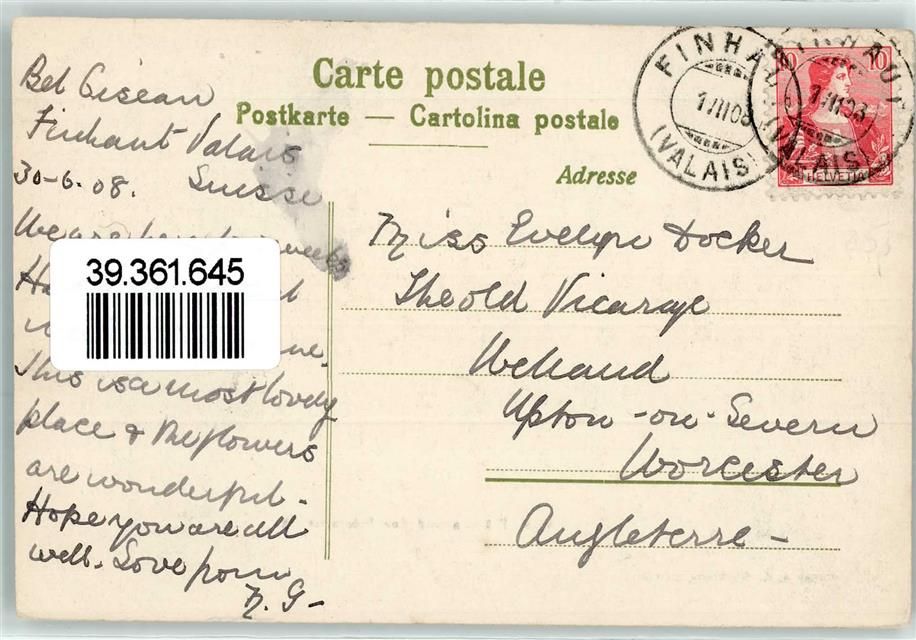 Carte postale
Postkarte — Cartolina postale
Adresse
FINHAUT
1 VII 08
(VALAIS)
FINHAUT
1 VII 08
(VALAIS)
10 10
HELVETIA
Bel Oiseau
Finhaut Valais
30-6-08. Suisse
We are
39.361.645
This is a most lovely
place & the flowers
are wonderful-
Hope you are all
well. Love from
M. G-
Miss Evelyn Docker
The old Vicarage
Welland
Upton-on-Severn
Worcester
Angleterre-